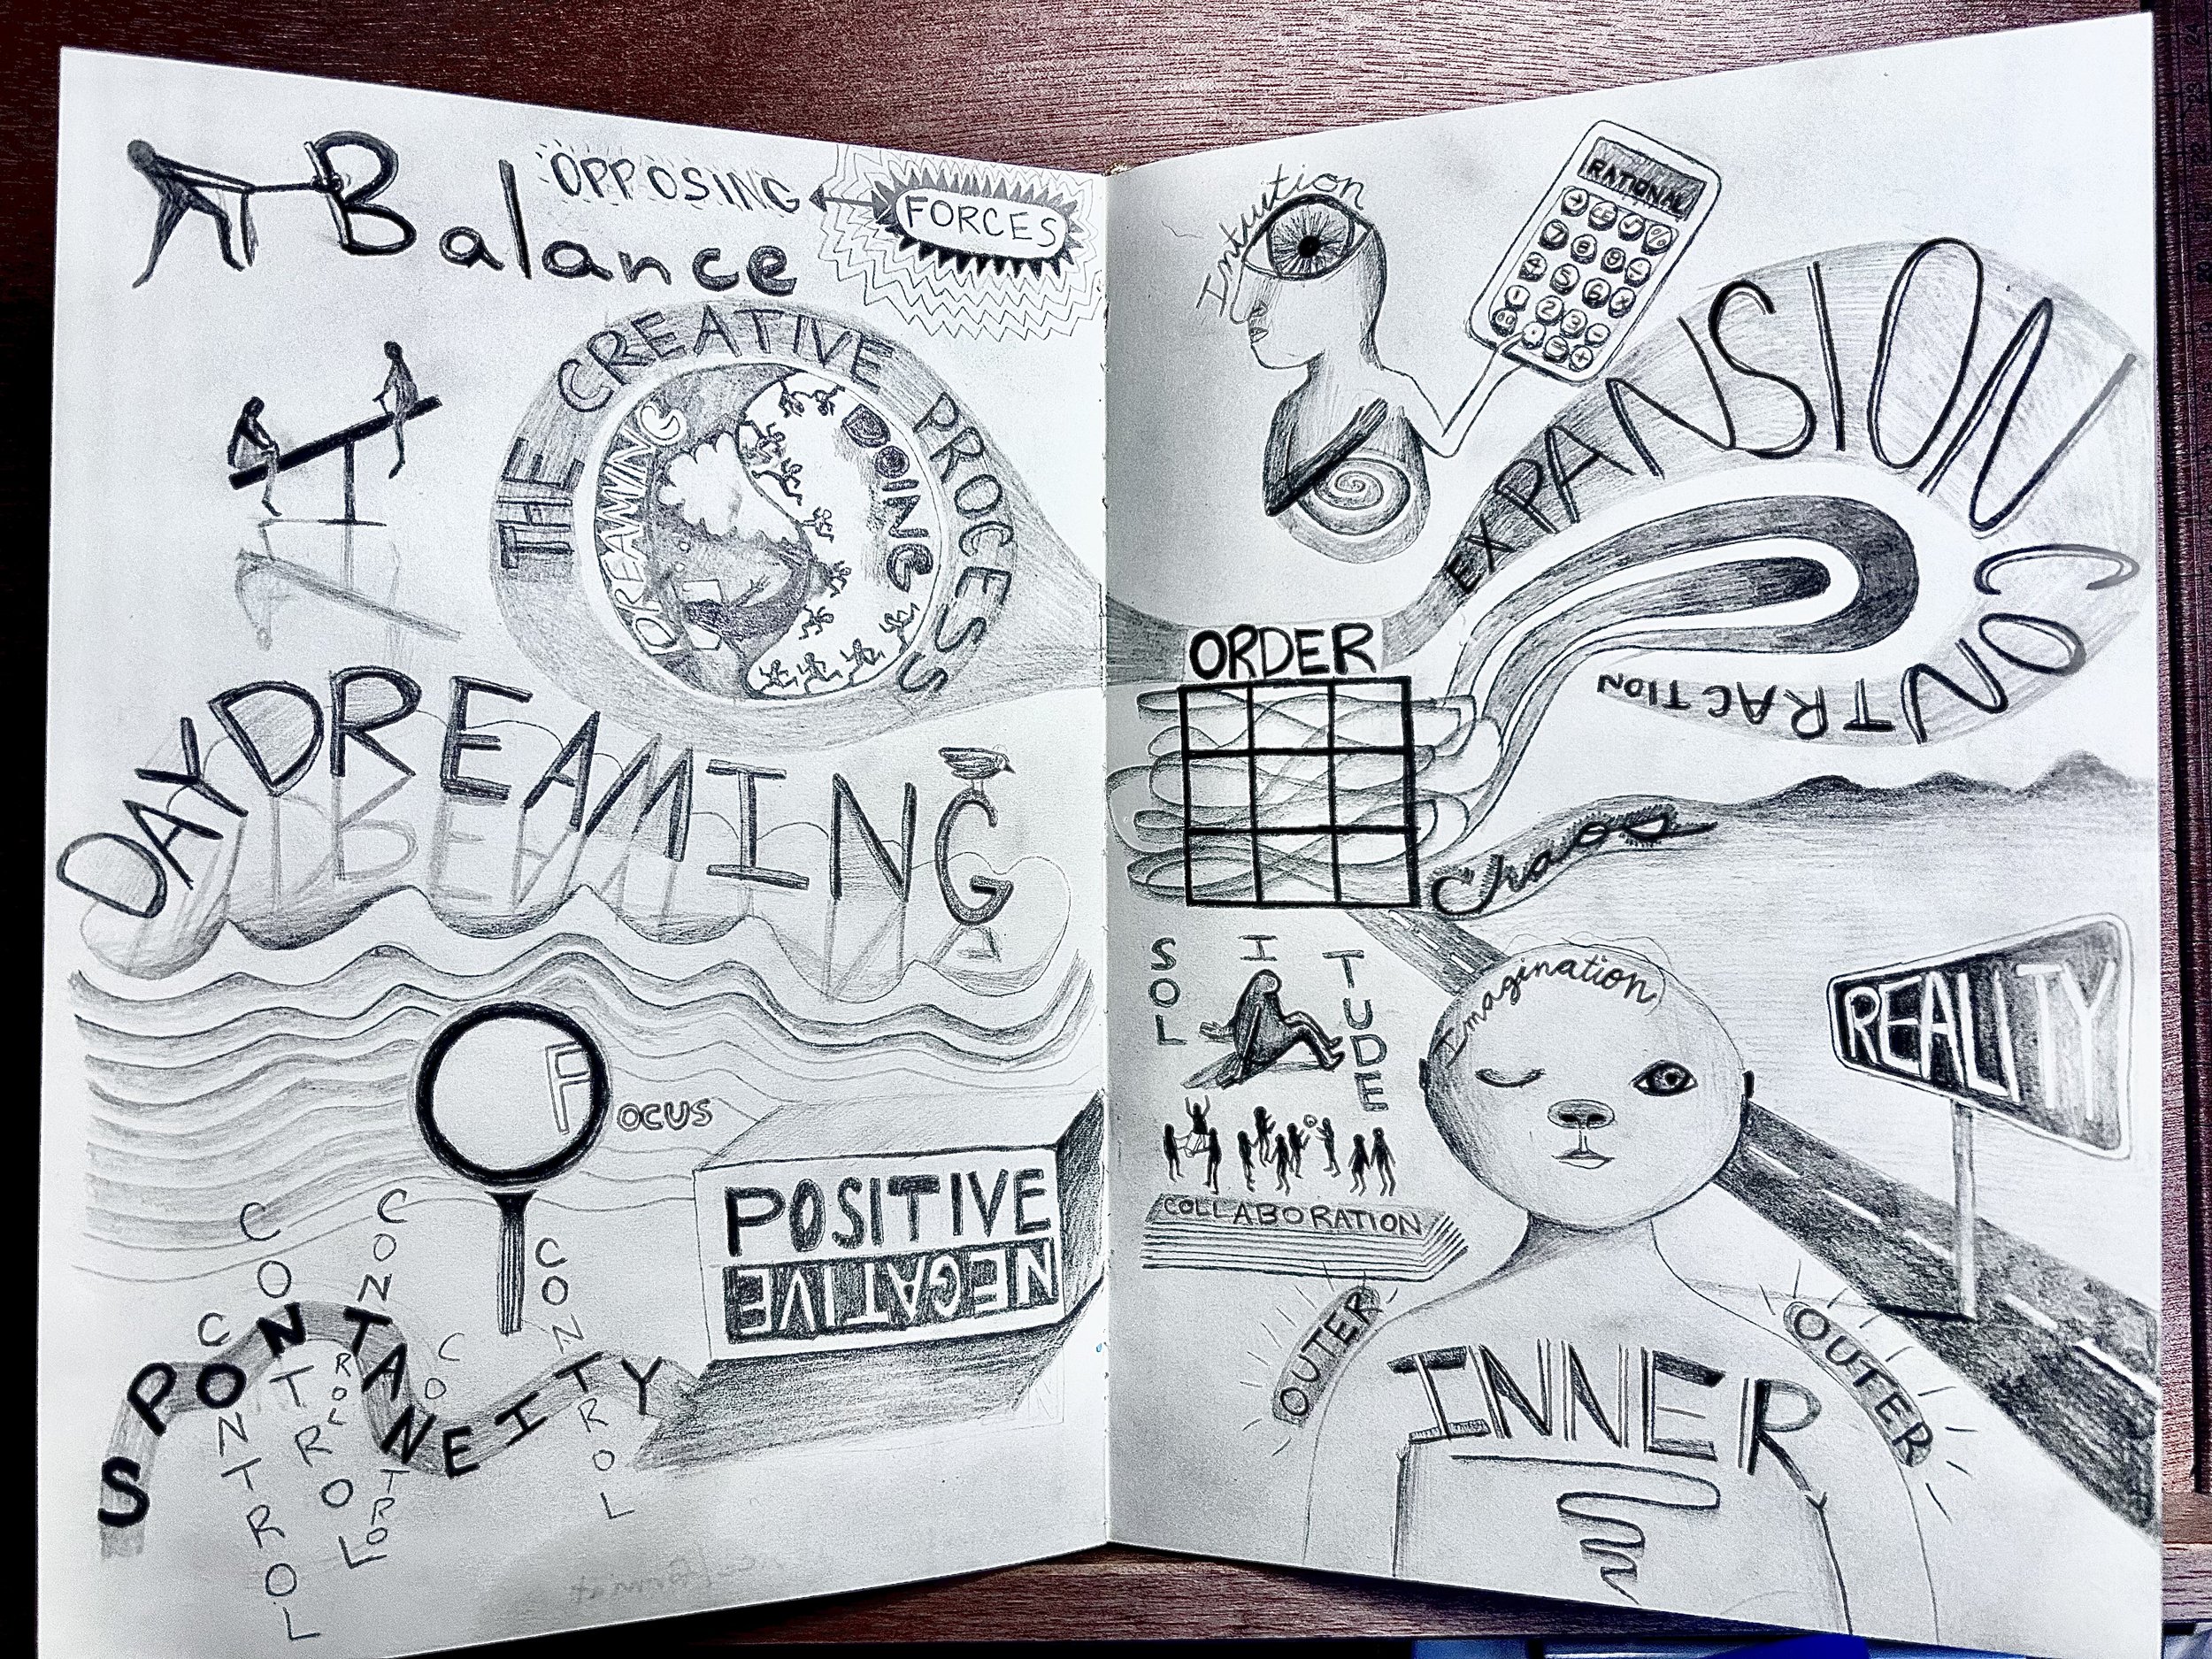 Balance
OPPOSING
FORCES
THE CREATIVE PROCESS
DREAMING
DOING
DAYDREAMING
FOCUS
POSITIVE
NEGATIVE
SPONTANEITY
CONTROL
CONTROL
CONTROL
CONTROL
CONTROL
Intuition
RATIONAL
7 8 9 ÷
4 5 6 x
1 2 3 -
EXPANSION
CONTRACTION
ORDER
Chaos
SOLITUDE
COLLABORATION
Imagination
REALITY
OUTER
INNER
OUTER